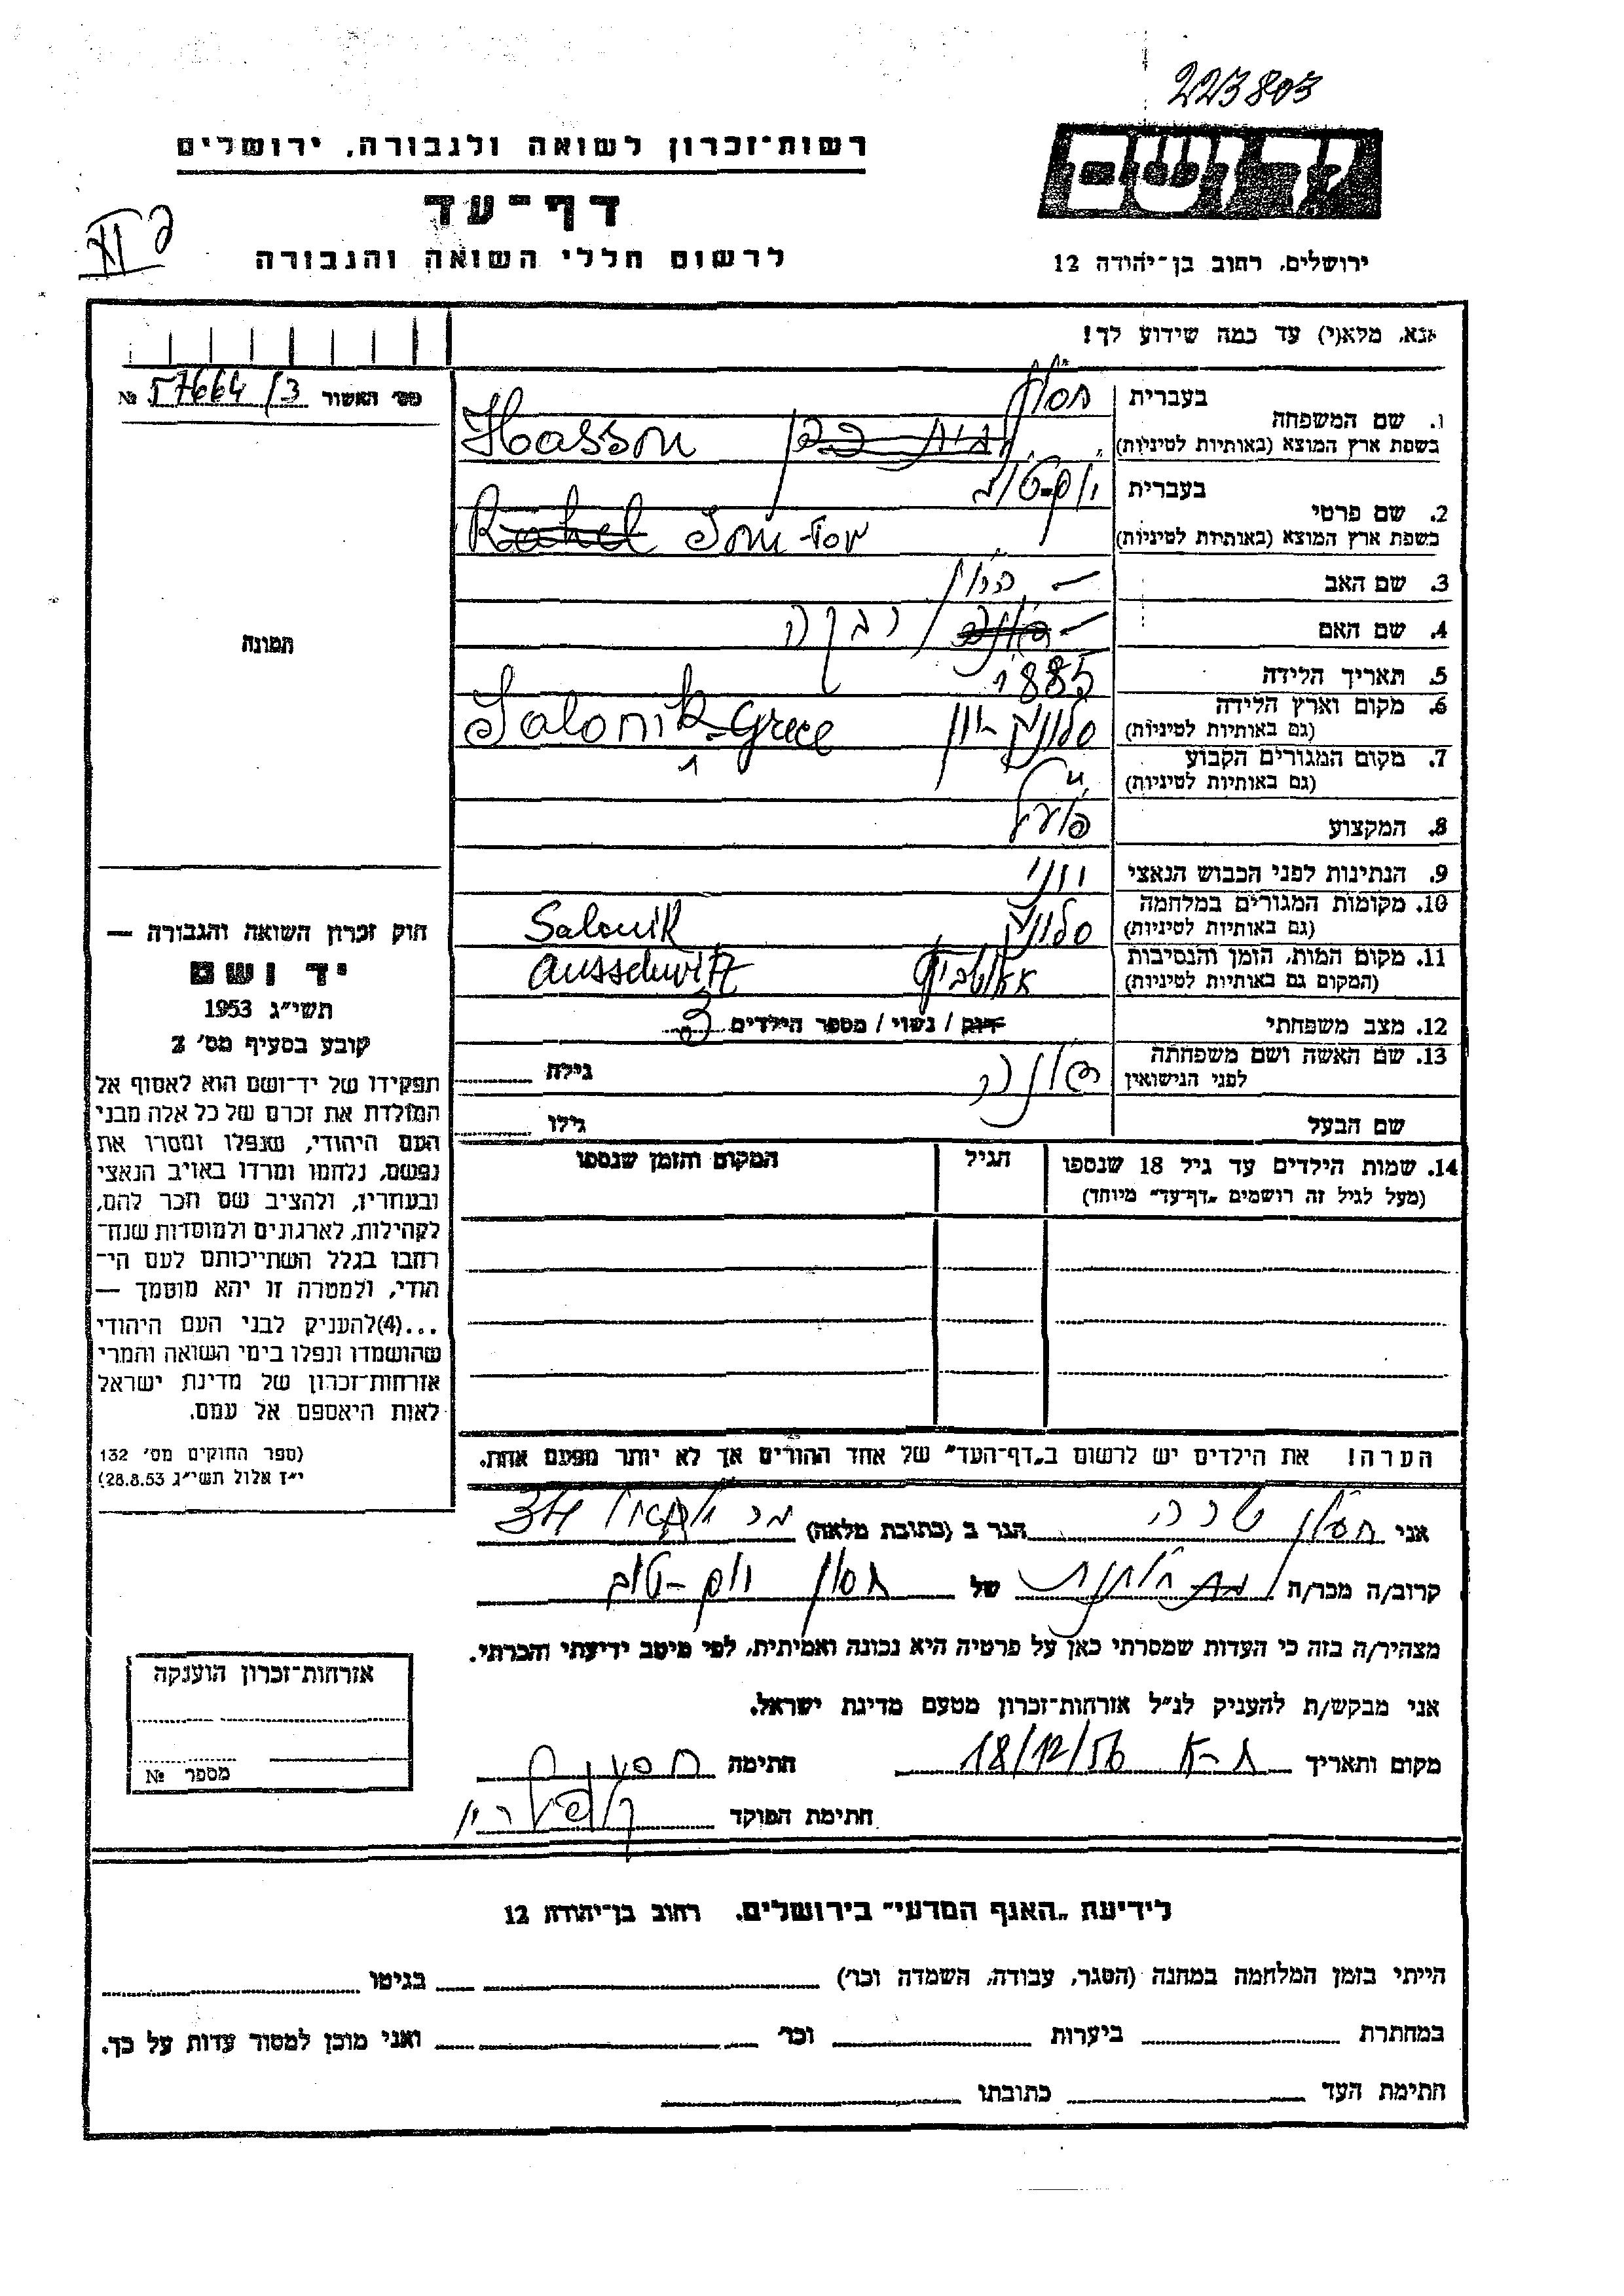 223803
רשות־זכרון לשואה ולגבורה, ירושלים
דף־עד
לרשום חללי השואה והגבורה
ירושלים, רחוב בן־יהודה 12
אנא, מלא(י) עד כמה שידוע לך!
מס׳ האשור 57664/3 №
1. שם המשפחה בעברית חסון
בשפת ארץ המוצא (באותיות לטיניות) Hasson
2. שם פרטי בעברית יום-טוב
בשפת ארץ המוצא (באותיות לטיניות) Rahel Iom-tov
3. שם האב
4. שם האם רבקה
5. תאריך הלידה 1885
6. מקום וארץ הלידה סלוניקי יון Salonik Grece
(גם באותיות לטיניות)
7. מקום המגורים הקבוע
(גם באותיות לטיניות)
8. המקצוע פועל
9. הנתינות לפני הכבוש הנאצי יוני
10. מקומות המגורים במלחמה סלוניקי Salonik
(גם באותיות לטיניות)
11. מקום המות, הזמן והנסיבות אאושביץ Ausschwitz
(המקום גם באותיות לטיניות)
12. מצב משפחתי רווק / נשוי / מספר הילדים 3
13. שם האשה ושם משפחתה
לפני הנישואין
גילה
שם הבעל גילו
14. שמות הילדים עד גיל 18 שנספו הגיל המקום והזמן שנספו
(מעל לגיל זה רושמים „דף־עד״ מיוחד)
תמונה
חוק זכרון השואה והגבורה —
יד ושם
תשי״ג 1953
קובע בסעיף מס׳ 2
תפקידו של יד־ושם הוא לאסוף אל
המולדת את זכרם של כל אלה מבני
העם היהודי, שנפלו ומסרו את
נפשם, נלחמו ומרדו באויב הנאצי
ובעוזריו, ולהציב שם וזכר להם,
לקהילות, לארגונים ולמוסדות שנח־
רבו בגלל השתייכותם לעם הי־
הודי, ולמטרה זו יהא מוסמך —
...(4)להעניק לבני העם היהודי
שהושמדו ונפלו בימי השואה והמרי
אזרחות־זכרון של מדינת ישראל
לאות היאספם אל עמם.
(ספר החוקים מס׳ 132
י״ז אלול תשי״ג 28.8.53)
הערה! את הילדים יש לרשום ב„דף־העד״ של אחד ההורים אך לא יותר מפעם אחת.
אני חסון שרה הגר ב (כתובת מלאה) 34
קרוב/ה מכר/ה של חסון יום-טוב
מצהיר/ה בזה כי העדות שמסרתי כאן על פרטיה היא נכונה ואמיתית, לפי מיטב ידיעתי והכרתי.
אני מבקש/ת להעניק לנ״ל אזרחות־זכרון מטעם מדינת ישראל.
מקום ותאריך ת-א 18/12/56 חתימה
חתימת הפוקד
אזרחות־זכרון הוענקה
מספר №
לידיעת „האגף המדעי״ בירושלים, רחוב בן־יהודה 12
הייתי בזמן המלחמה במחנה (הסגר, עבודה, השמדה וכו׳) בגיטו
במחתרת ביערות וכו׳ ואני מוכן למסור עדות על כך.
חתימת העד כתובתו